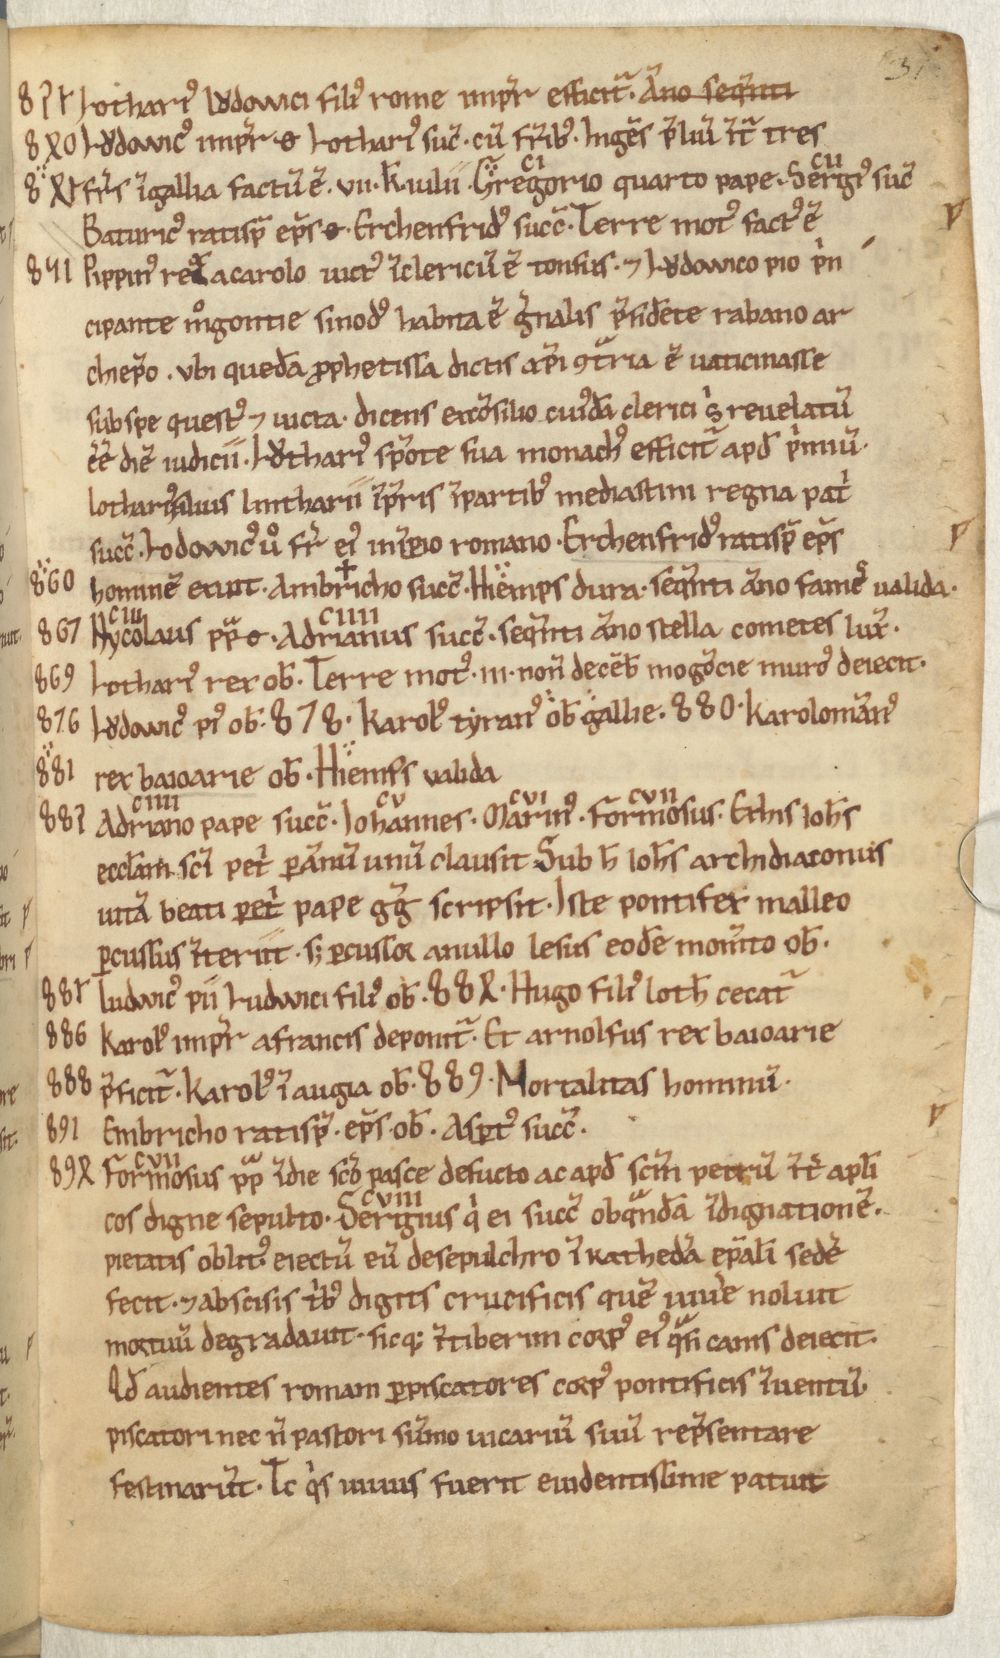 37
821 Lothariꝰ lvdowici filiꝰ rome imp̃r efficit᷑. Ãno seq̃nti
8X0 Lvdowicꝰ imp̃r o. Lothariꝰ suc̃. cũ fr̃ibꝰ. Ingẽs p̃liũ int̃ tres
8X1 fr̃s ĩ gallia factũ ẽ. vii. k̃. iulii. Gregorio quarto pape. Sergiꝰ suc̃
Baturicꝰ ratisp̃ ep̃s o. Erchenfridꝰ succ̃. Terre motꝰ factꝰ ẽ
841 Pippinꝰ rex a carolo uictꝰ ĩ clericũ ẽ tonsus. ⁊ Lvdowico pio p̃n
cipante mogontie sinodꝰ habita ẽ gñalis p̃sidẽte rabano ar
chiep̃o. vbi quedã prophetissa dictis xp̃i ꝯtria ẽ uaticinasse
sub spe questꝰ ⁊ uicta. dicens ex cõsilio cuiꝰdã clerici s̃ revelatũ
ẽẽ diẽ iudicii. Lothariꝰ spõte sua monachꝰ efficit᷑ apd̃ p̃miũ.
lothariꝰ filius lutharii ĩp̃ris ĩ partibꝰ mediastini regna pat̃
succ̃. Lodowicꝰ ů fr̃ eiꝰ imp̃io romano. Erchenfridꝰ ratisp̃ ep̃s
860 hominẽ exuit. Ambricho succ̃. Hiemps dura. seq̃nti ãno famẽ valida.
ciii ciiii
867 Nycolaus pp̃ o. Adrianus succ̃. seq̃nti ãno stella cometes lux̃.
869 Lothariꝰ rex ob̃. Terre motꝰ. iii. noñ decẽb̃ mogõcie muros deiecit.
876 Lvdowicꝰ piꝰ ob̃. 878. Karolꝰ tyranꝰ ob̃ gallie. 880. Karolomãnꝰ
881 rex baioarie ob̃. Hiemps valida
ciiii cv cvi cvii
882 Adriano pape succ̃. Iohannes. Marinꝰ. Formosus. Ethis Ioh̃s
eccl̃am sc̃i pet̃ p ãnũ unũ clausit Sub h̃ Ioh̃s archidiaconus
uitã beati pet̃ pape gg̃ scripsit. Iste pontifex malleo
ꝑcussus ĩteriit. s; ꝑcussor anullo lesus eodẽ momẽto ob̃.
881 Ludwicꝰ pii Ludwici filiꝰ ob̃. 88X. Hugo filiꝰ loth̃ cecat᷑
886 Karolꝰ imp̃r a francis deponit᷑. Et arnolfus rex baioarie
888 p̃ficit᷑. Karolꝰ ĩ augia ob̃. 889. Mortalitas hominũ.
891 Embricho ratisp̃. ep̃s ob̃. Asptꝰ succ̃.
cvii
89X Formosus pp̃ ĩ die scõ pasce defucto ac apd̃ scm̃ petrũ ĩt̃ apl̃i
cviii
cos digne sepulto. Sergius q̃ ei succ̃ ob quandã ĩdignationẽ.
pietatis oblitꝰ eiectũ eũ de sepulchro ĩ kathedã ep̃ali sedẽ
fecit. ⁊ abscisis t̃bꝰ digitis crucificis quẽ uiuẽ noluit
mortuũ degradauit. sicq; ĩ tiberim corpꝰ eiꝰ q̃si canis deiecit.
Qd̃ audientes romam ꝑ piscatores corpꝰ pontificis ĩuentũ
piscatori nec ñ pastori sũmo uicariũ suũ rep̃sentare
festinarũt. Tc̃ q̃s uiuus fuerit euidentissime patuit